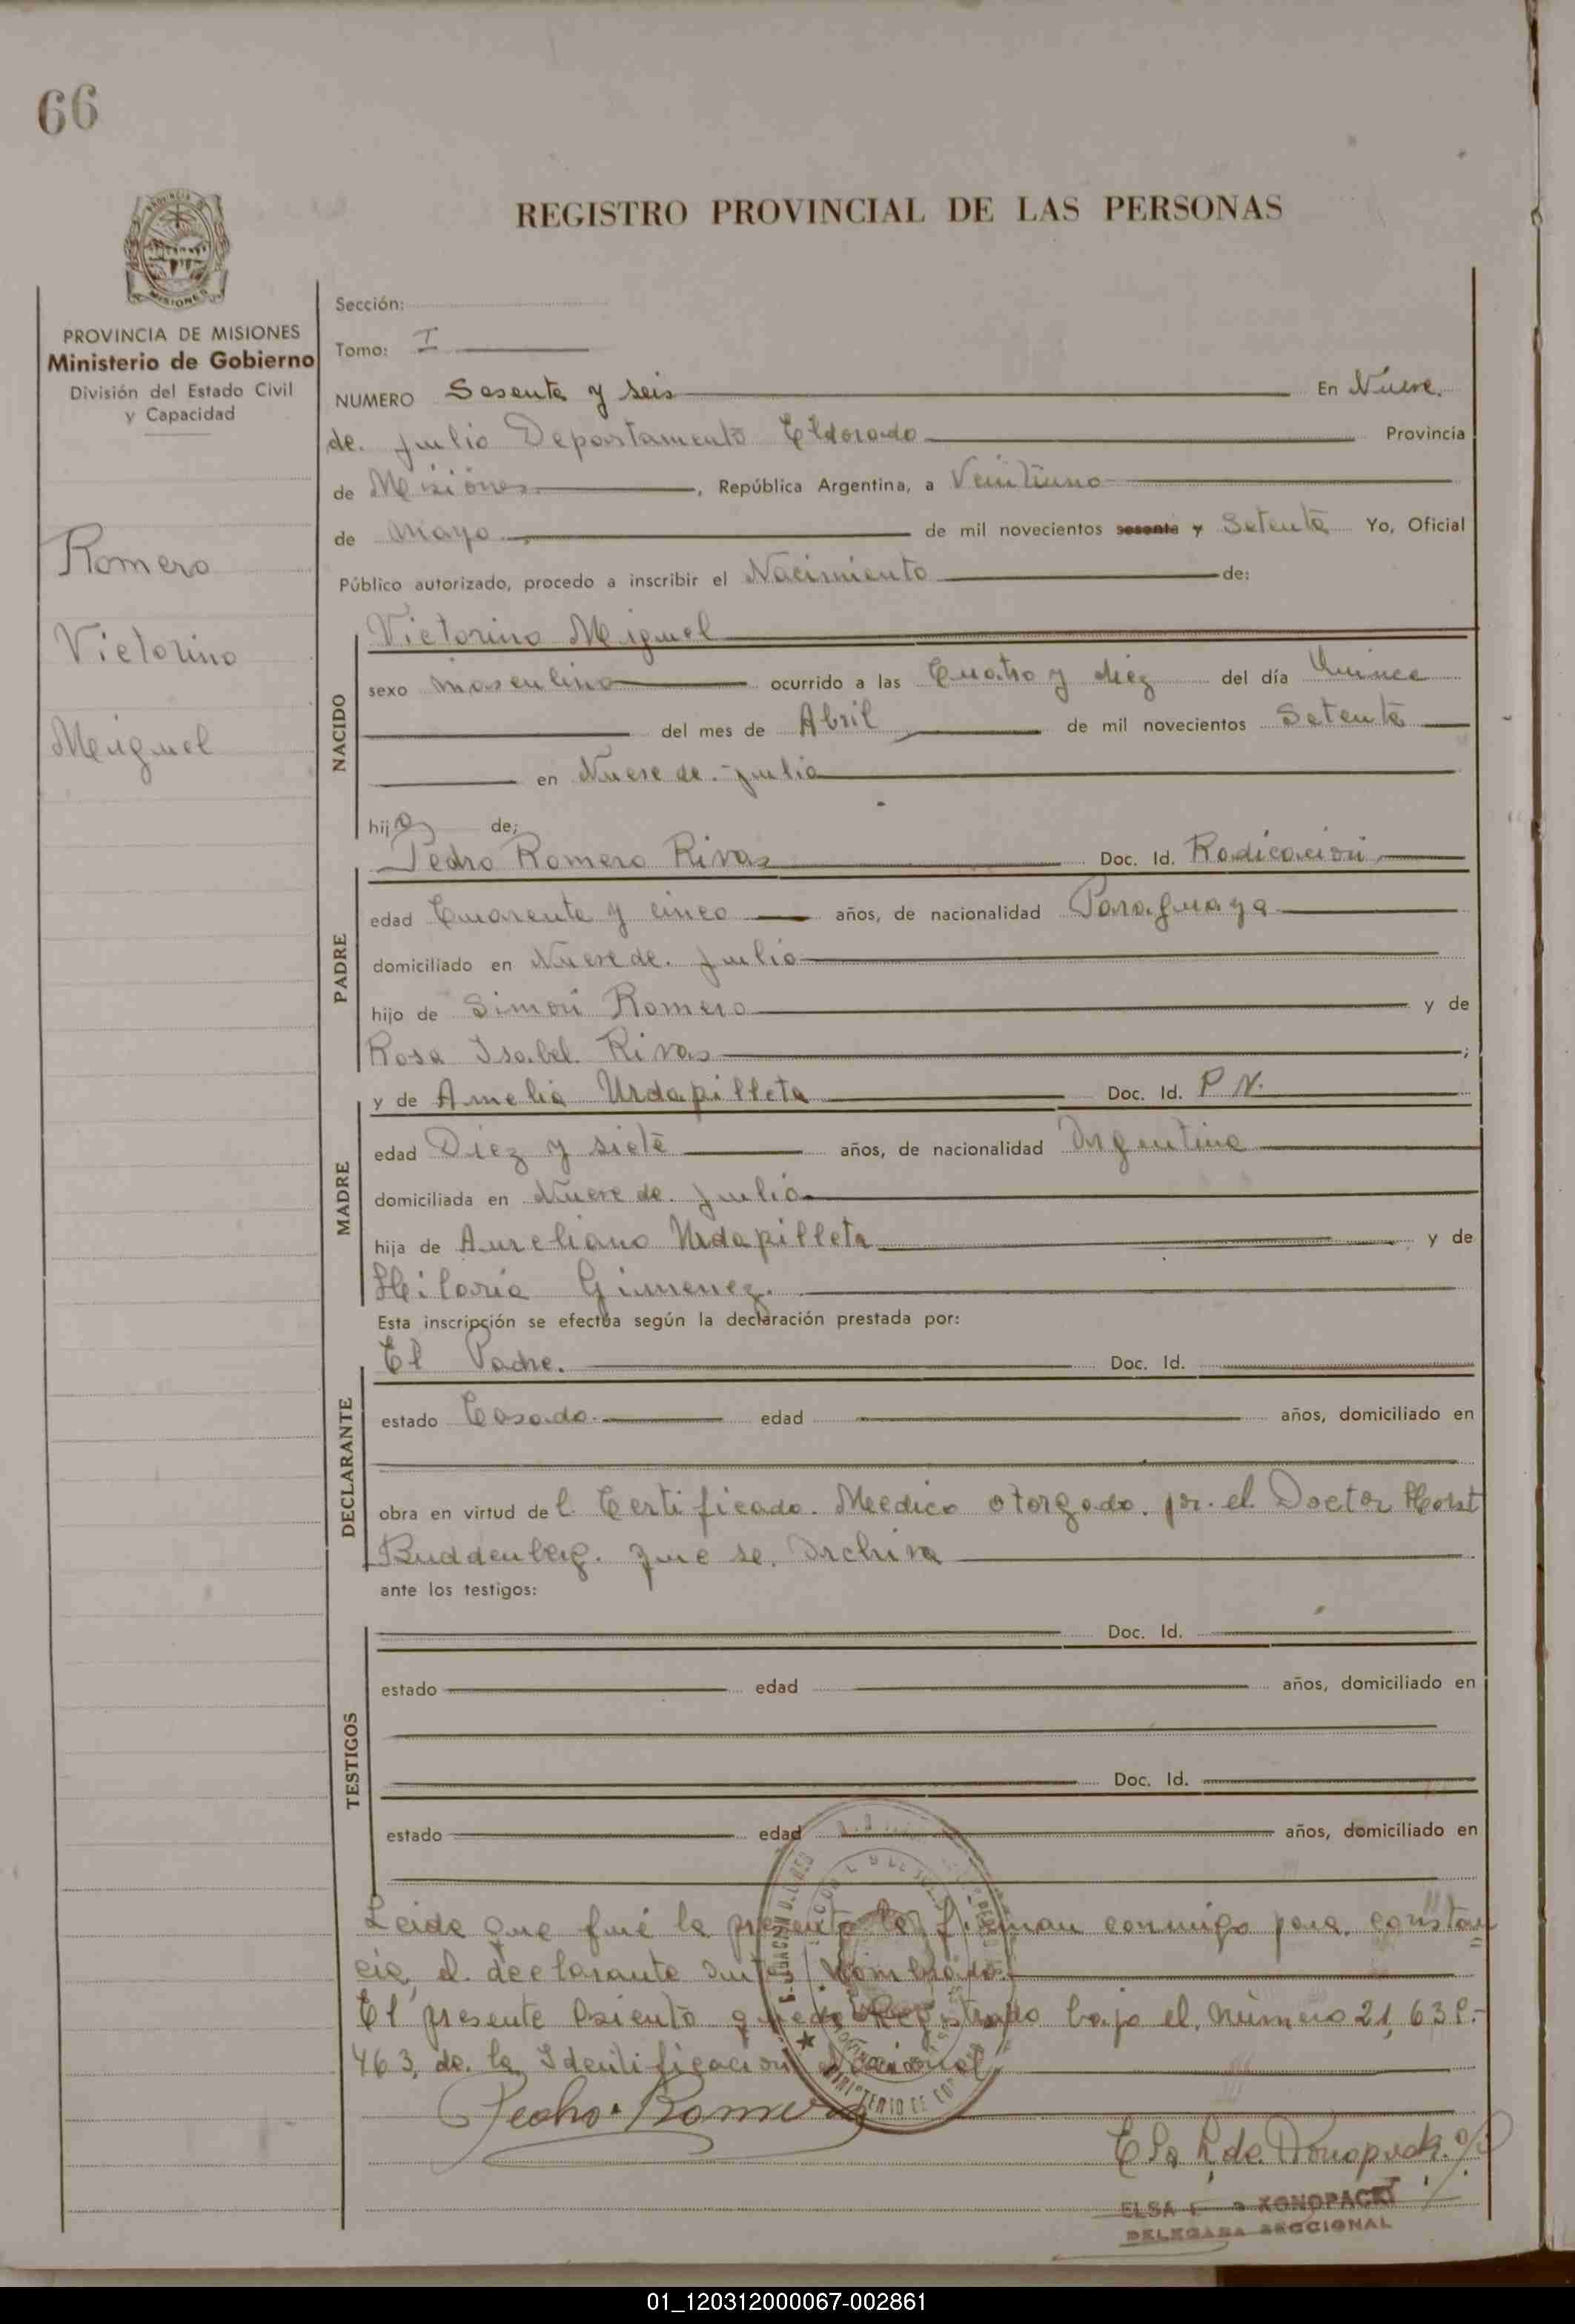 66
REGISTRO PROVINCIAL DE LAS PERSONAS
PROVINCIA DE MISIONES
Ministerio de Gobierno
División del Estado Civil
y Capacidad
Romero
Victorino
Miguel
Sección:
Tomo: I
NUMERO Sesenta y seis En Nueve
de Julio Departamento Eldorado Provincia
de Misiones, República Argentina, a Veintiuno
de Mayo de mil novecientos sesenta y Setenta Yo, Oficial
Público autorizado, procedo a inscribir el Nacimiento de:
NACIDO
Victorino Miguel
sexo masculino ocurrido a las Cuatro y diez del día Quince
del mes de Abril de mil novecientos Setenta
en Nueve de Julio
hijo de;
PADRE
Pedro Romero Rivas Doc. Id. Radicación
edad Cuarenta y cinco años, de nacionalidad Paraguaya
domiciliado en Nueve de Julio
hijo de Simón Romero y de
Rosa Isabel Rivas;
MADRE
y de Amelia Urdapilleta Doc. Id. P N.
edad Diez y siete años, de nacionalidad Argentina
domiciliada en Nueve de Julio
hija de Aureliano Urdapilleta y de
Hilaria Gimenez.
Esta inscripción se efectúa según la declaración prestada por:
DECLARANTE
El Padre. Doc. Id.
estado Casado edad años, domiciliado en
obra en virtud del Certificado Medico otorgado por el Doctor Horst
Buddenberg. que se Archiva
ante los testigos:
TESTIGOS
Doc. Id.
estado edad años, domiciliado en
Doc. Id.
estado edad años, domiciliado en
Leida que fué la presente la firman conmigo para constan
cia, el declarante antes Nombrado.
El presente Asiento queda Registrado bajo el número 21,639.-
463, de la Identificacion Nacional
Pedro Romero
Elsa L de Konopacki
ELSA KONOPACKI
DELEGADA SECCIONAL
01_120312000067-002861